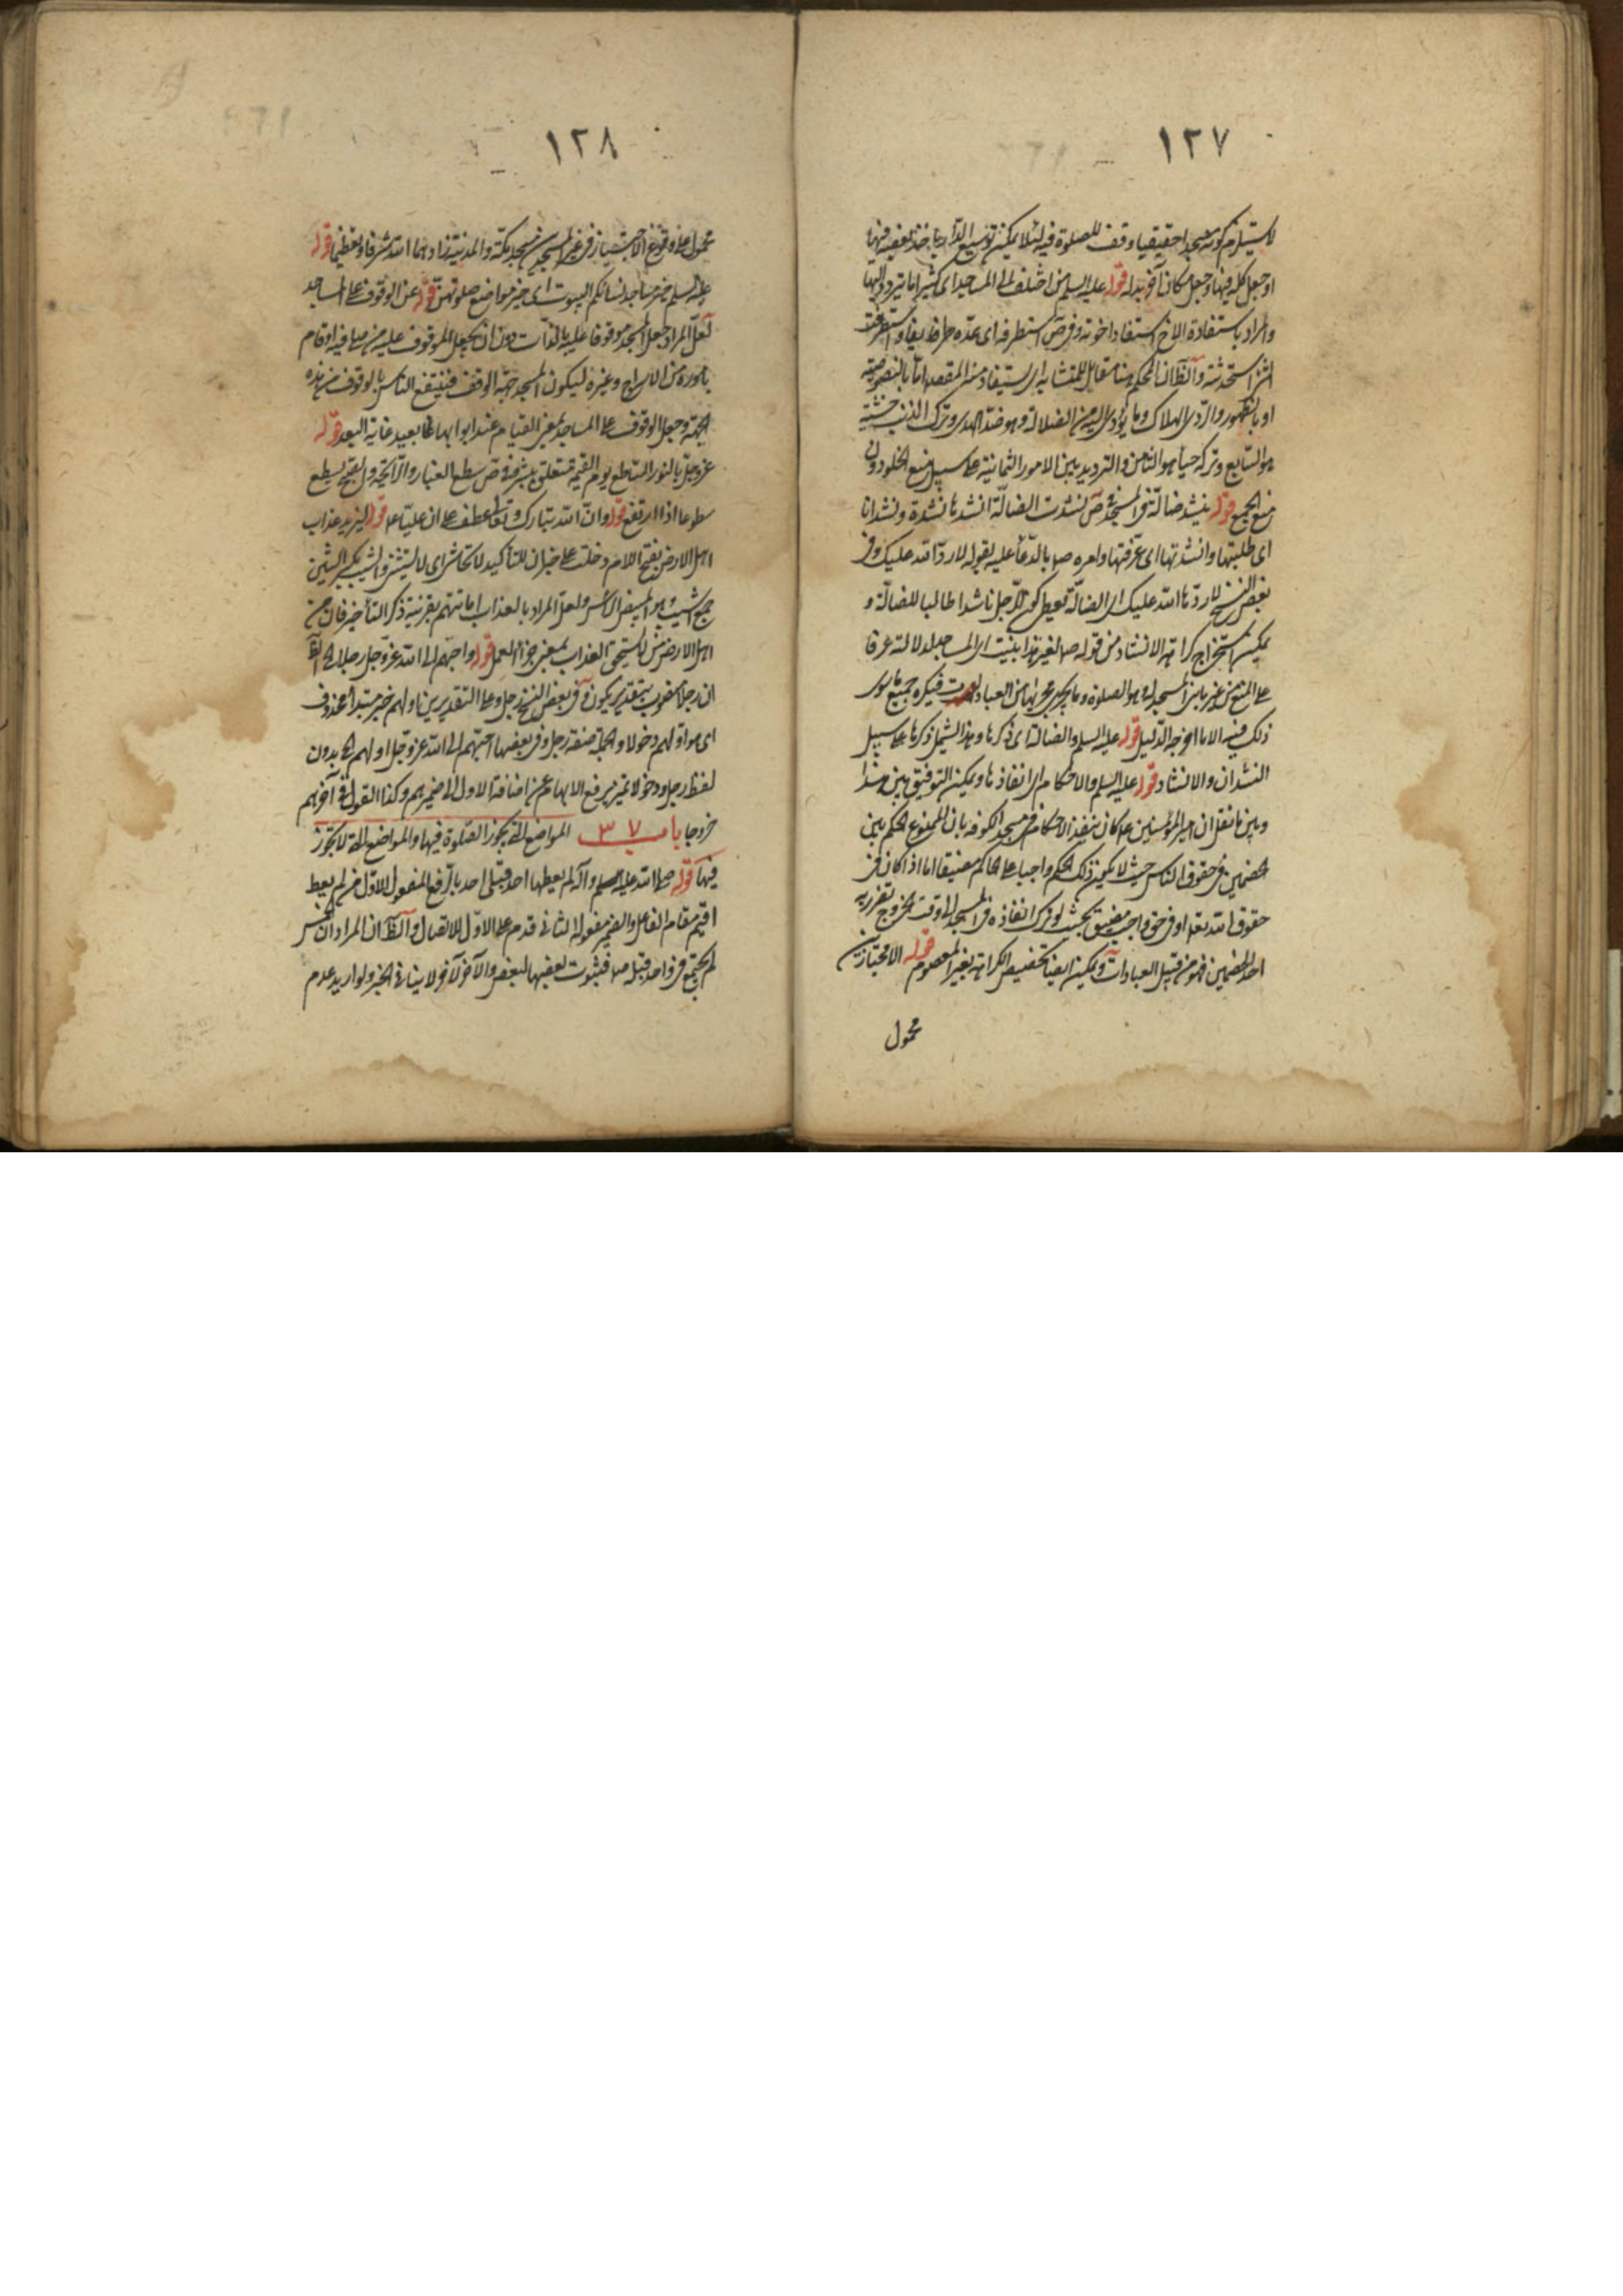 ١٢٧
لا يستلزم كونه مسجدا حقيقيا وقف للصلوة فيه لئلا يمكن توسيع الدار باخذ بعضه فيها
او جعل كله فيها وجعل مكان آخر بدله قوله عليه السلم من اختلف الى المساجد اى كثيرا ما يتردد اليها
والمراد باستفادة الاخ استفادة اخوته وفى ص استطرفه اى عده طريفا واستطرفت
الشئ استحدثته والظ ان المحكمة هنا مقابل للمتشابه اى يستفاد منه المقصد اما بالنصوصية
او بالظهور والردى الهلاك وما يؤدى اليه من الضلالة وهو ضد الهدى وترك الذنب خشية
هو السابع وتركه حياء هو الثامن والترديد بين الامور الثمانية على سبيل منع الخلو دون
منع الجمع قوله ينشد ضالة فى المسجد فى ص نشدت الضالة انشدها نشدة ونشدانا
اى طلبتها وانشدتها اى عرفتها وامره ص بالدعاء عليه بقوله لا رد الله عليك وفى
بعض النسخ لا ردها الله عليك اى الضالة يعطى كون الرجل ناشدا طالبا للضالة و
يمكن استخراج كراهة الانشاد من قوله ص لغير هذا بنيت اى المساجد لدلالته عرفا
على المنع من غير ما بنى المسجد له وهو الصلوة وما يجرى مجراها من العبادات فيكره جميع ما سوى
ذلك فيه الا ما اخرجه الدليل قوله عليه السلم والضالة اى ذكرها وهذا يشمل ذكرها على سبيل
النشدان والانشاد قوله عليه السلم والاحكام اى انفاذها ويمكن التوفيق بين هذا
وبين ما نقل ان امير المؤمنين ع كان ينفذ الاحكام فى مسجد الكوفه بان الممنوع الحكم بين
الخصمين فى حقوق الناس حيث لا يكون ذلك الحكم واجبا على الحاكم مضيقا اما اذا كان فى
حقوق الله تعالى او فى حق واجب مضيق بحيث لو ترك انفاذه فى المسجد الى وقت الخروج تضرر به
احد الخصمين فهو من قبيل العبادات ويمكن ايضا تخصيص الكراهة بغير المعصوم قوله الا مجتازين
محمول
١٢٨
محمول على وقوع الاجتياز فى غير المسجدين مسجد مكة والمدينة زادهما الله شرفا وتعظيما قوله
عليه السلم خير مساجد نسائكم البيوت اى خير مواضع صلوتهن قوله عن الوقوف على المساجد
لعل المراد جعل المسجد موقوفا عليه بالذات دون ان يجعل الموقوف عليه من يصلى فيه او قام
باموره من الاسراج وغيره ليكون المسجد جهة الوقف فينتفع الناس بالوقوف من هذه
الجهة وجعل الوقوف على المساجد بمعنى القيام عند ابوابها بعيد غاية البعد قوله
عز وجل بالنور الساطع يوم القيمة متعلق ببشر وفى ص سطع الغبار والرائحة والصبح يسطع
سطوعا اذا ارتفع قوله وان الله تبارك وتعالى عطف على ان عليا ع قوله ليريد عذاب
اهل الارض بفتح اللام دخلت على خبر ان للتأكيد لا تحاشى اى لا يستثنى والشيب بكسر الشين
جمع اشيب وهو المبيض الراس ولعل المراد بالعذاب اماتتهم بقرينة ذكر التأخير فان من
اهل الارض من لا يستحق العذاب بمعنى جزاء العمل قوله واحبهم الى الله عز وجل رجلا الخ الظ
ان رجلا منصوب بتقدير يكون وفى بعض النسخ رجل وعلى التقديرين اولهم خبر مبتدأ محذوف
اى هو اولهم دخولا والجملة صفة رجل وفى بعضها احبهم الى الله عز وجل اولهم الخ بدون
لفظ رجل ودخولا تميز يرفع الابهام عن اضافة الاول الى ضميرهم وكذا القول فى آخرهم
خروجا باب ٣٧ المواضع التى يجوز الصلوة فيها والمواضع التى لا يجوز
فيها قوله صلى الله عليه وآله لم يعطها احد قبلى احد بالرفع المفعول الاول من لم يعط
اقيم مقام الفاعل والضمير مفعوله الثانى قدم على الاول للاتصال والظ ان المراد ان الخمس
لم يجتمع فى واحد قبله ص فثبوت بعضها لبعض والآخر لآخر لا ينافى الخبر ولو اريد عدم